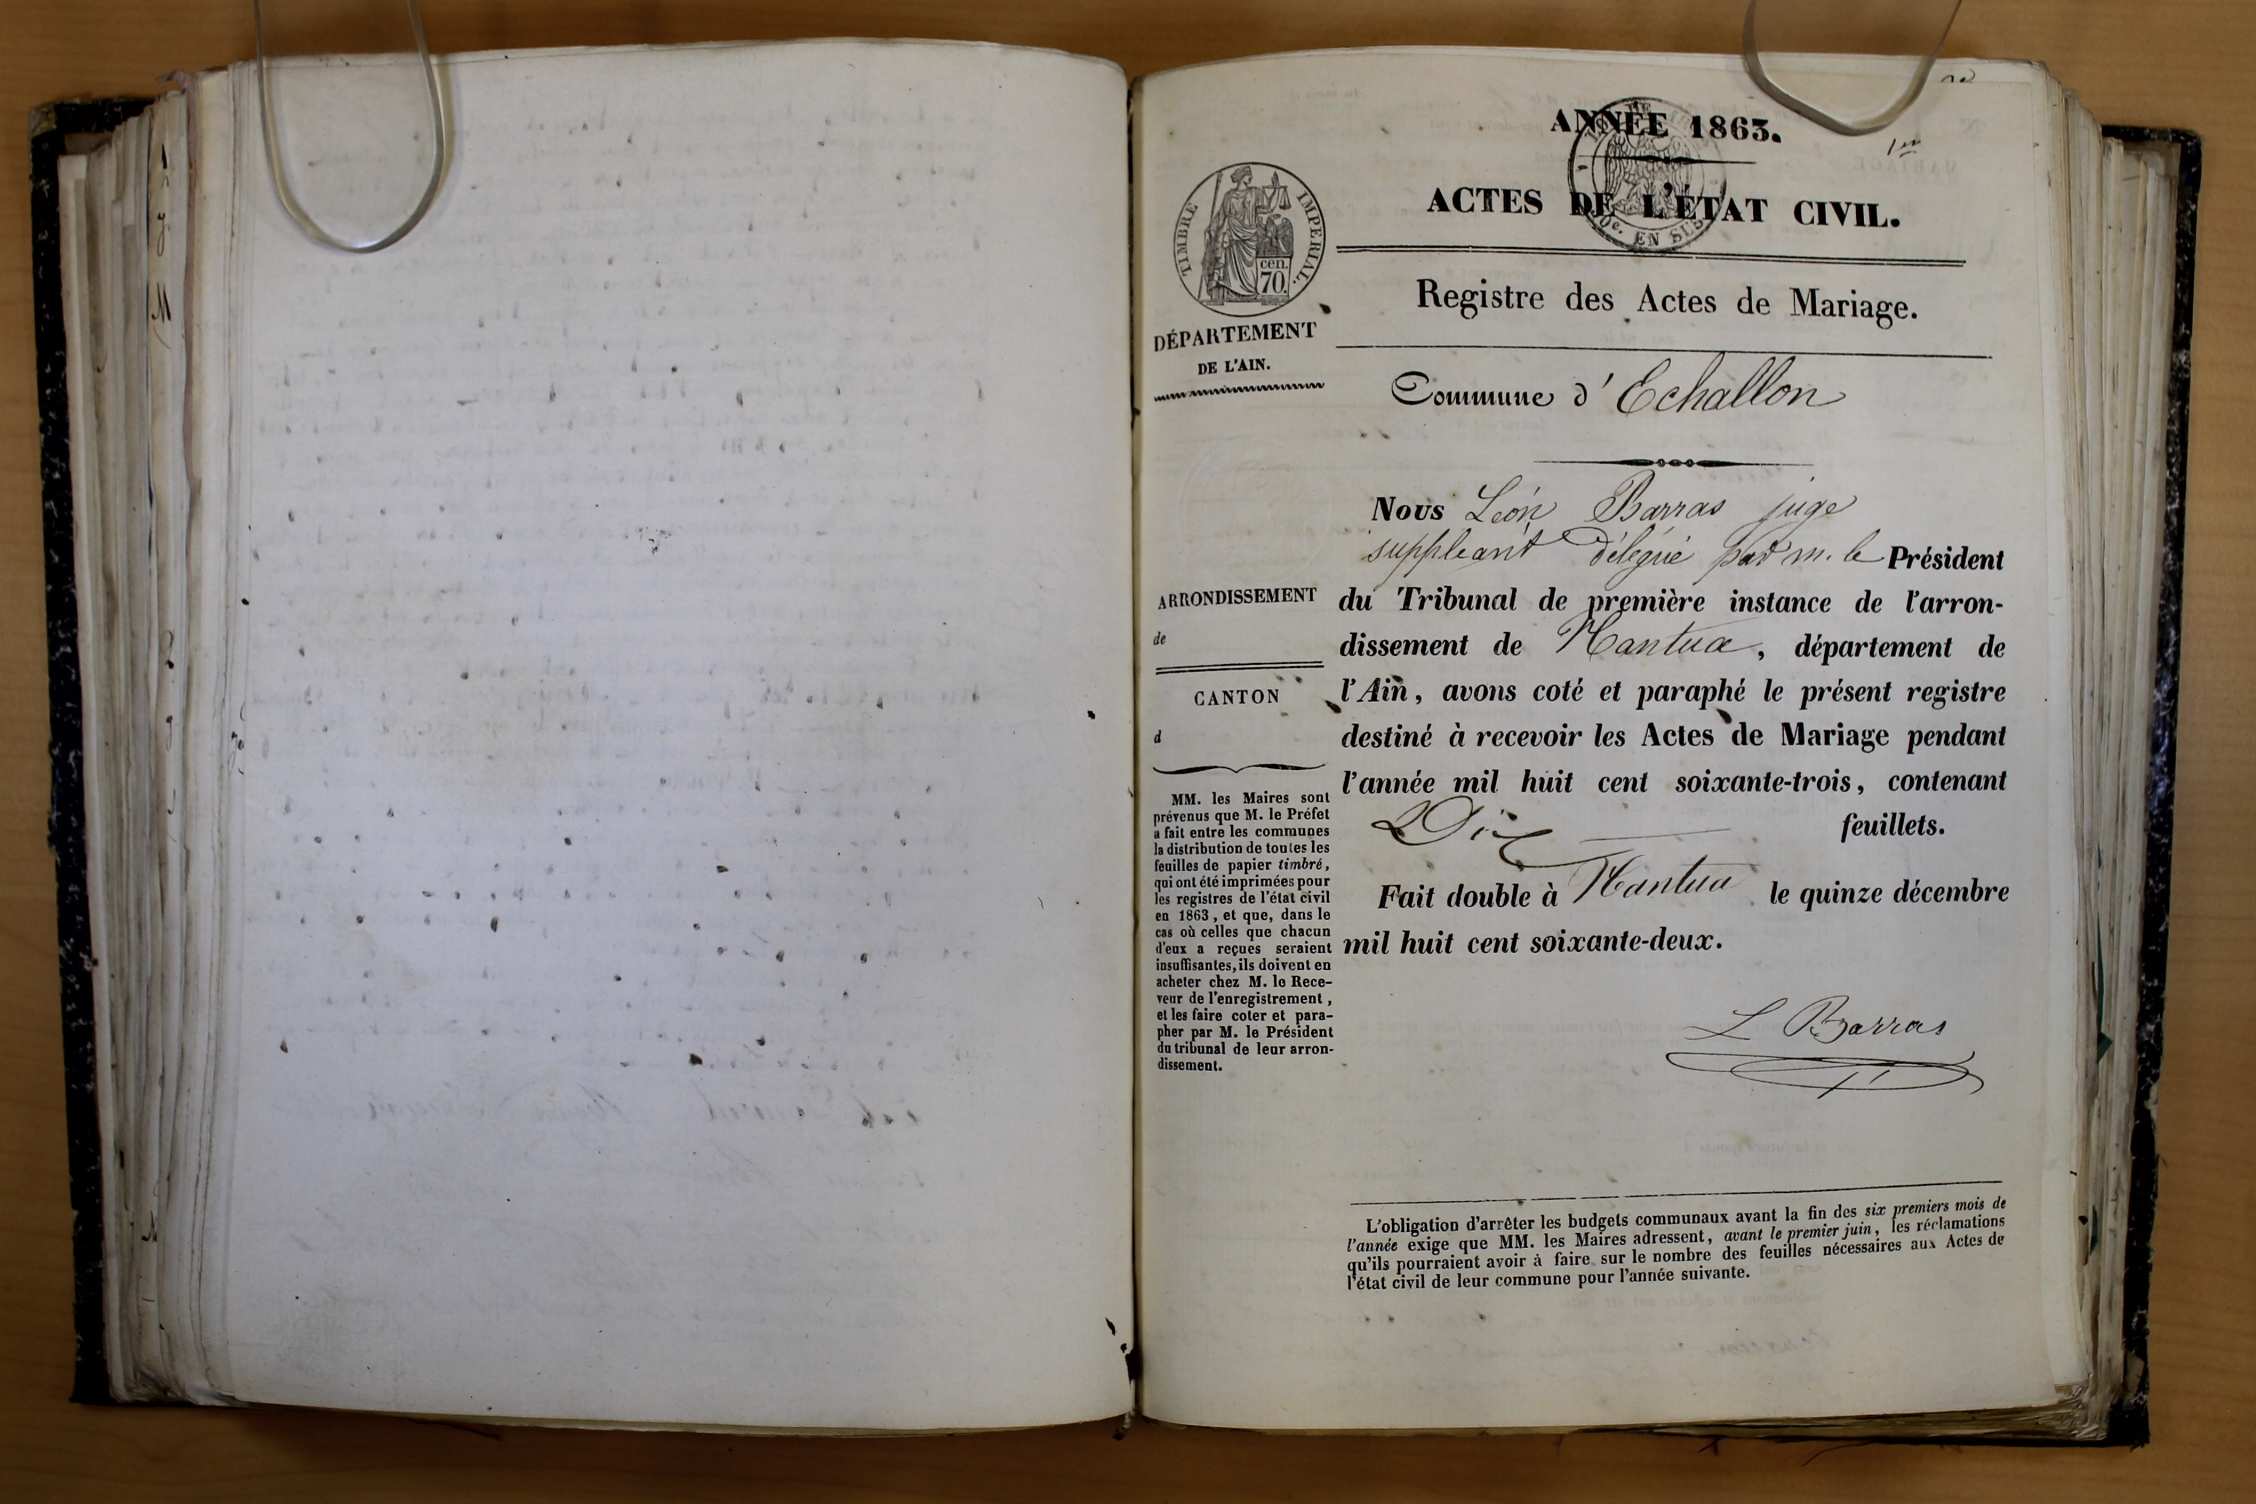 ANNÉE 1863.
1er
ACTES DE L'ÉTAT CIVIL.
EN SUS
TIMBRE IMPERIAL.
cen.
70.
Registre des Actes de Mariage.
DÉPARTEMENT
DE L'AIN.
Commune d'Echallon
Nous Léon Barras juge
suppleant délégué par m. le Président
du Tribunal de première instance de l'arron-
dissement de Nantua, département de
l'Ain, avons coté et paraphé le présent registre
destiné à recevoir les Actes de Mariage pendant
l'année mil huit cent soixante-trois, contenant
Dix feuillets.
Fait double à Nantua le quinze décembre
mil huit cent soixante-deux.
L Barras
ARRONDISSEMENT
de
CANTON
d
MM. les Maires sont
prévenus que M. le Préfet
a fait entre les communes
la distribution de toutes les
feuilles de papier timbré,
qui ont été imprimées pour
les registres de l'état civil
en 1863, et que, dans le
cas où celles que chacun
d'eux a reçues seraient
insuffisantes, ils doivent en
acheter chez M. le Rece-
veur de l'enregistrement,
et les faire coter et para-
pher par M. le Président
du tribunal de leur arron-
dissement.
L'obligation d'arrêter les budgets communaux avant la fin des six premiers mois de
l'année exige que MM. les Maires adressent, avant le premier juin, les réclamations
qu'ils pourraient avoir à faire sur le nombre des feuilles nécessaires aux Actes de
l'état civil de leur commune pour l'année suivante.